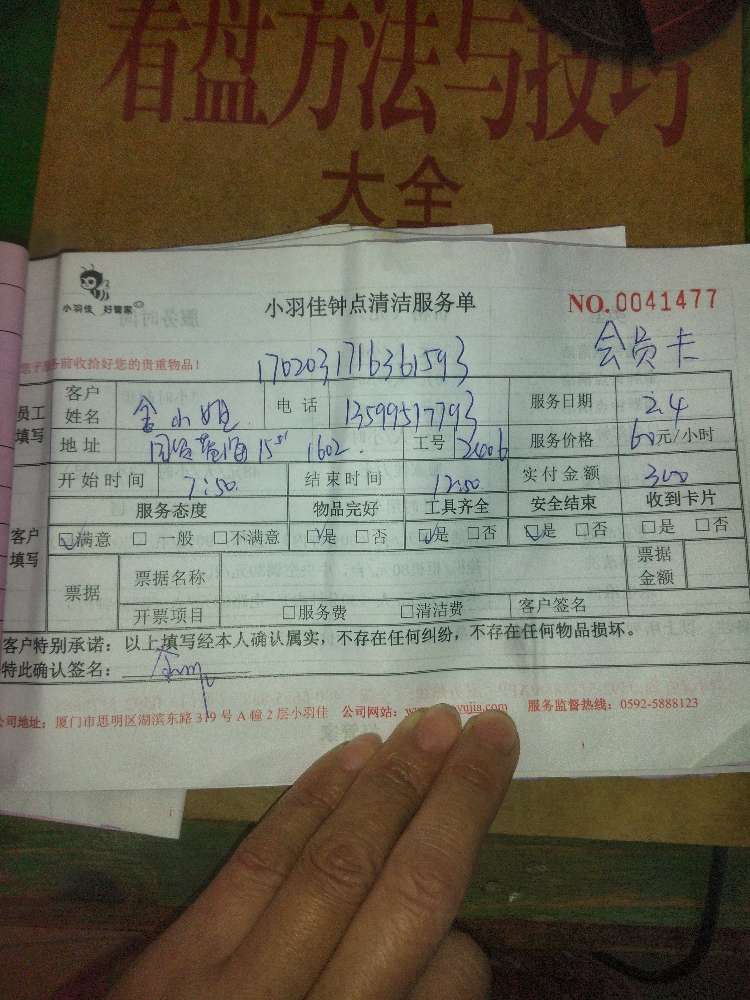 看盘方法与技巧
大全
小羽佳 好管家
小羽佳钟点清洁服务单
NO.0041477
前收拾好您的贵重物品!
1702031716361593
会员卡
员工填写
客户姓名 金小姐 电话 13599517793 服务日期 2.4
地址 1602 工号 服务价格 60元/小时
开始时间 7:50 结束时间 12:50 实付金额 300
客户填写
服务态度 物品完好 工具齐全 安全结束 收到卡片
☑满意 □一般 □不满意 ☑是 □否 ☑是 □否 ☑是 □否 □是 □否
票据 票据名称 票据金额
开票项目 □服务费 □清洁费 客户签名
客户特别承诺:以上填写经本人确认属实,不存在任何纠纷,不存在任何物品损坏。
特此确认签名:
公司地址:厦门市思明区湖滨东路319号A幢2层小羽佳 公司网站: yujia.com 服务监督热线:0592-5888123